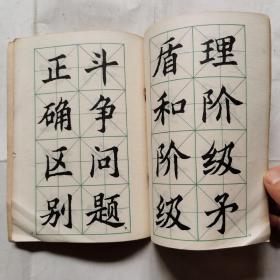 理阶级矛
盾和阶级
斗争问题
正确区别